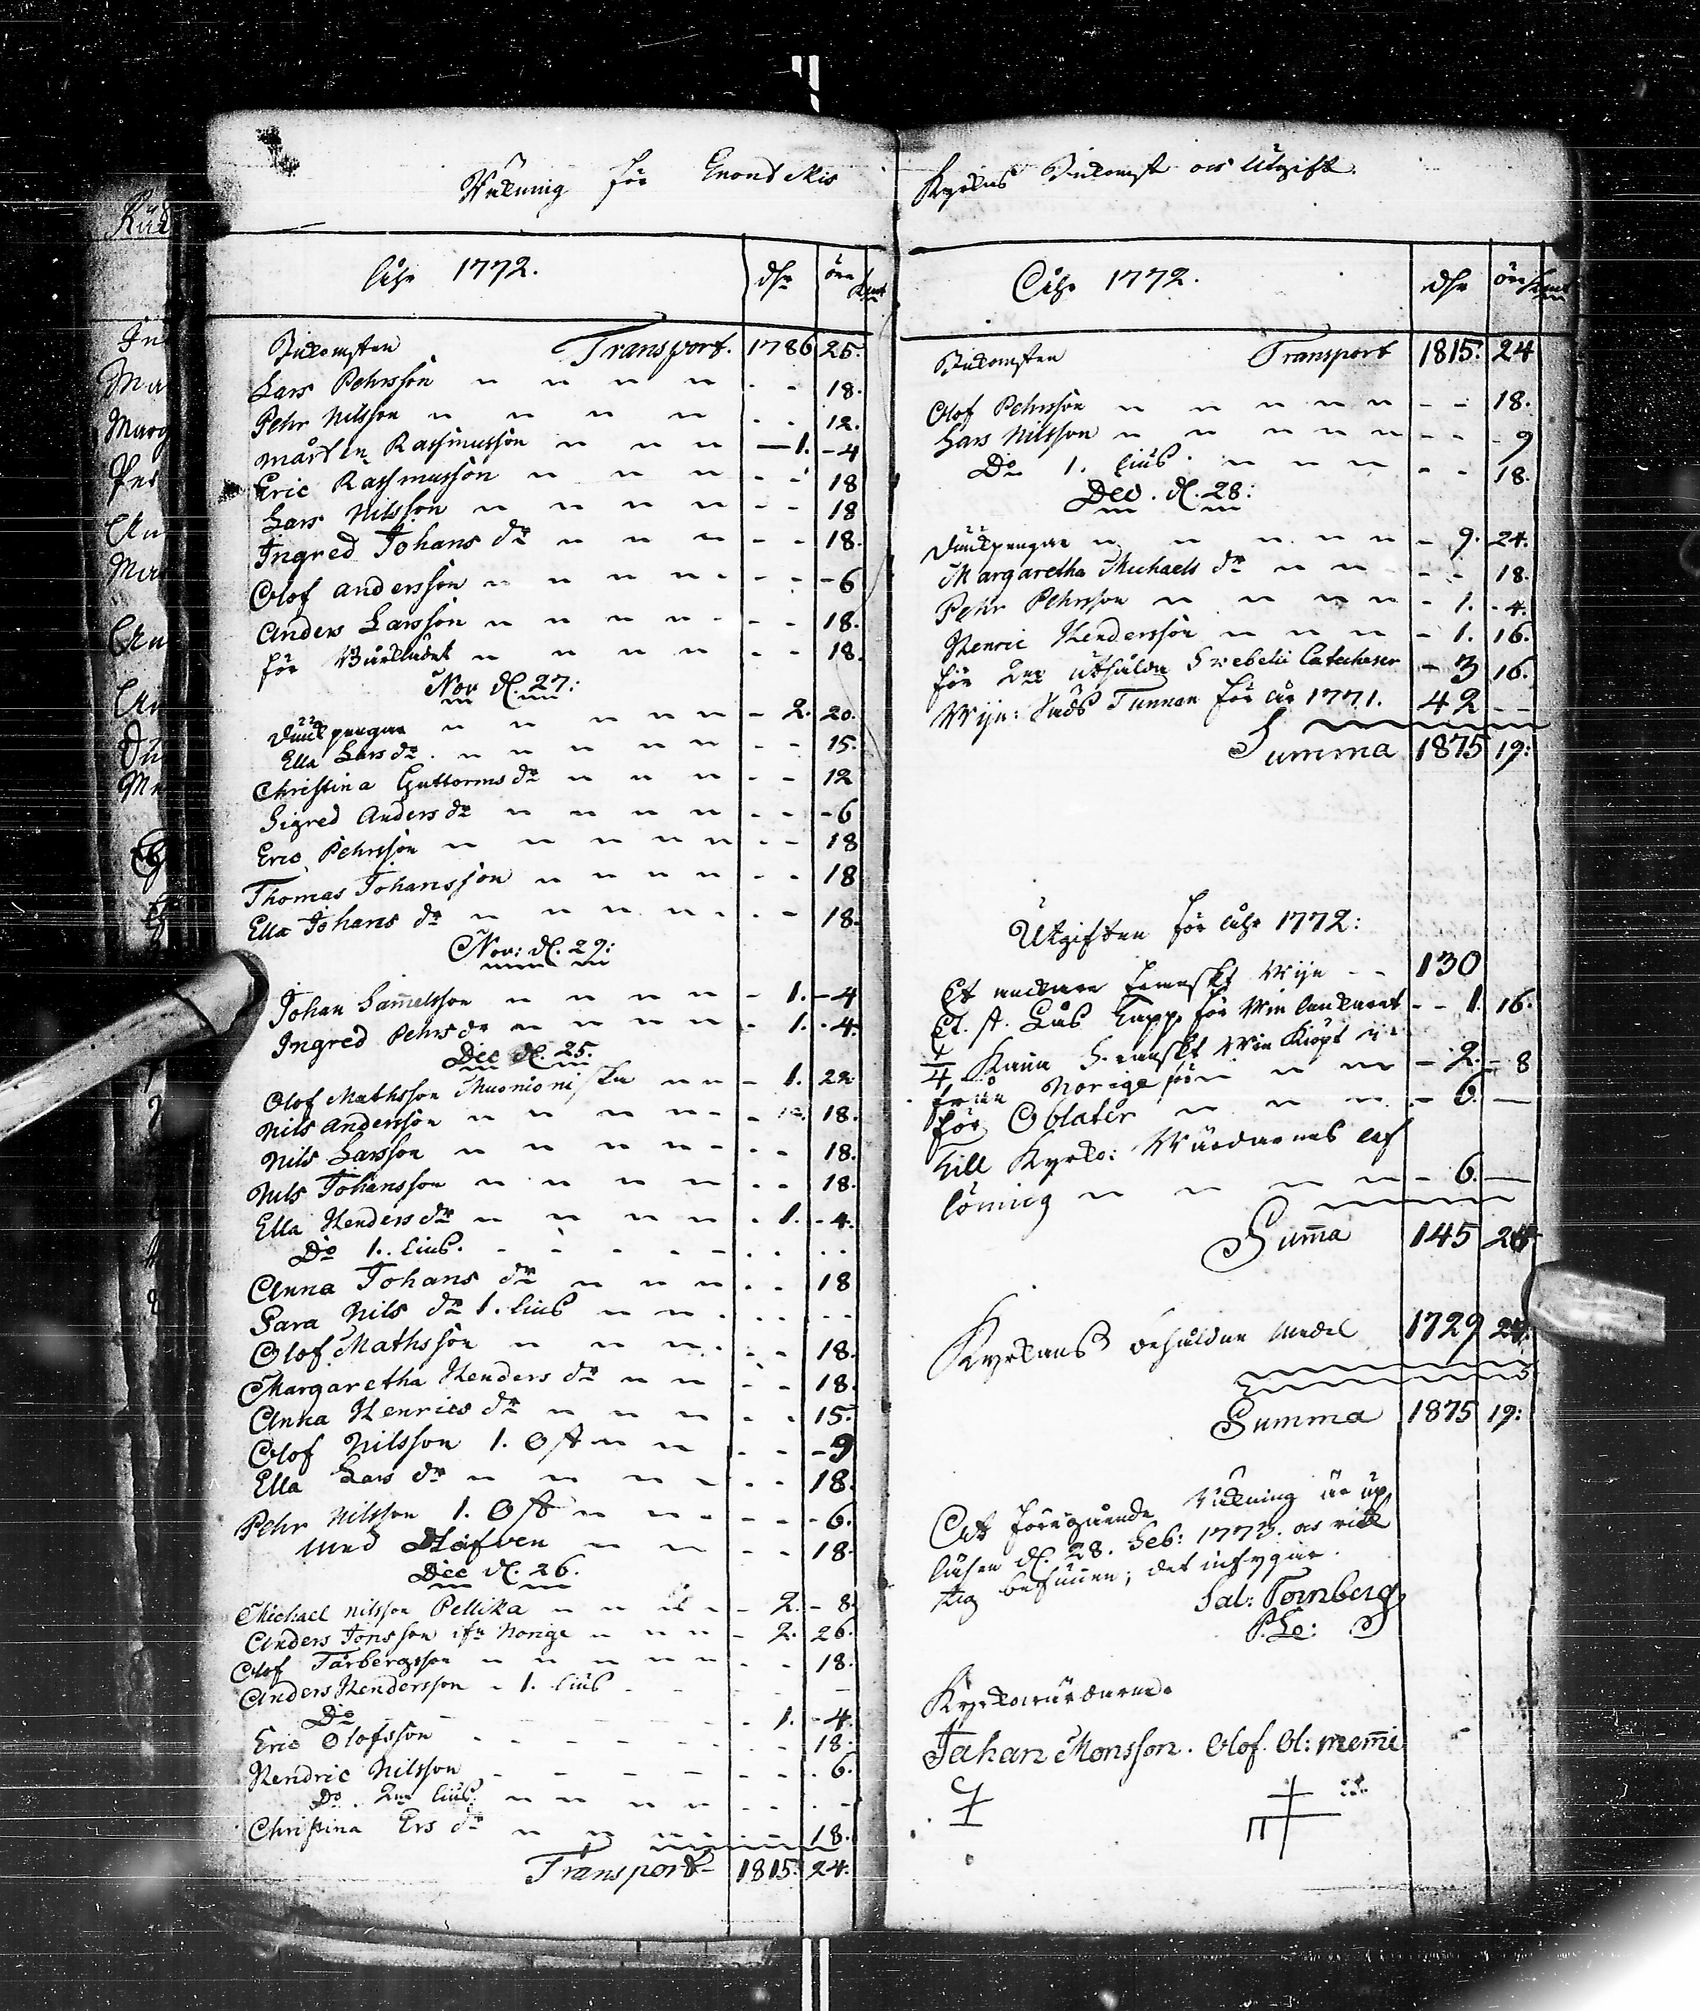 Räkning för Enontekis
Åhr 1772. dlr öre Kmt
Inkomsten Transport. 1786 25.
Lars Pehrsson 18.
Pehr Nilsson 12.
Mårten Rassmusson 1. 4
Eric Rassmusson 18
Lars Nilsson 18
Ingred Johans dr 18.
Olof andersson 6
Anders Larsson 18.
för 18.
Nov d. 27:
2. 20.
Ella Lars dr 15.
Christina Guttorms dr 12
Sigred Anders dr 6
Eric Pehrsson 18
Thomas Johansson 18
Ella Johans dr 18.
Nov: d. 29:
Johan Samelsson 1. 4
Ingred Pehrs dr 1. 4.
Dec d. 25.
Olof Mathsson Muonioniska 1. 22
Nils Andersson 18.
Nils Larsson 18.
Nils Johansson 18.
Ella Henders dr 1. 4.
Do 1. lius.
Anna Johans dr 18
Sara Nils dr 1. lius
Olof Mathsson 18.
Margaretha Henders dr 18.
Anna Henrics dr 15.
Olof Nilsson 1. Ost 9
Ella Lars dr 18.
Pehr Nilsson 1. Ost 6.
med Håfven 18.
Dec d. 26.
Michael Nilsson Pellika 2. 8.
Anders Jonsson ifr Norige 2. 26.
Olof Tårbergsson 18.
Anders Hendersson 1. lius
Do 1. 4.
Eric Olofsson 18.
Hendric Nilsson 6.
Do 2ne lius
Christina Ers dr 18.
Transport 1815. 24.
Kyrkas Inkomst och Utgift.
Åhr 1772. dlr öre Kmt
Inkomsten Transport 1815. 24
Olof Pehrsson 18.
Lars Nilsson 9
Do 1. lius 18.
Dec. d. 28:
9. 24.
Margaretha Michaels dr 18.
Pehr Pehrsson 1. 4.
Henric Hendersson 1. 16.
för 2ne utsålda Svebelii Catecheser 3 16.
Wijn: Säds Tunnan för år 1771. 42
Summa 1875 19:
Utgiften för Åhr 1772:
Et anckare franskt Wijn 130
Et st. Lås Tapp för Win anckaret 1. 16.
1/4 Kanna franskt Win Kiöpt
från Norige 2. 8
för Oblater 6.
till Kyrko: Wärdarnes af
löning 6.
Suma 145 24
Kyrkans behåldne Medel 1729 24.
Summa 1875 19:
At föregående Räkning är up
läsen d. 28. Feb: 1773. och rick
tig befunnen; det intygar.
Sal: Tornberg
Kyrkowärdarne.
Johan Monsson. Olof. Ol: memi